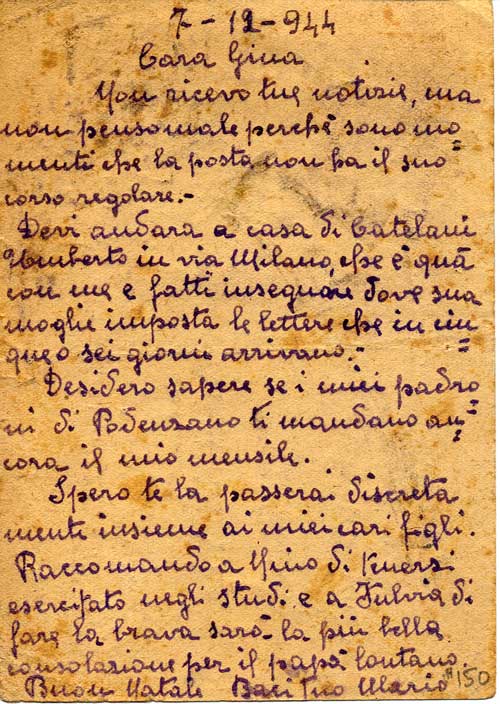 7-12-944
Cara Gina
Non ricevo tue notizie, ma
non penso male perchè sono mo=
menti che la posta non ha il suo
corso regolare.-
Devi andara a casa di Catelani
Umberto in via Milano, che è quà
con me e fatti insegnare dove sua
moglie imposta le lettere che in cin=
que o sei giorni arrivano.-
Desidero sapere se i miei padro=
ni di Podenzano ti mandano an=
cora il mio mensile.
Spero te la passerai discreta
menti insieme ai miei cari figli.
Raccomando a Nino di tenersi
esercitato negli studi e a Fulvia di
fare la brava sarà la più bella
consolazione per il papà lontano.
Buon Natale Baci Tuo Mario
150